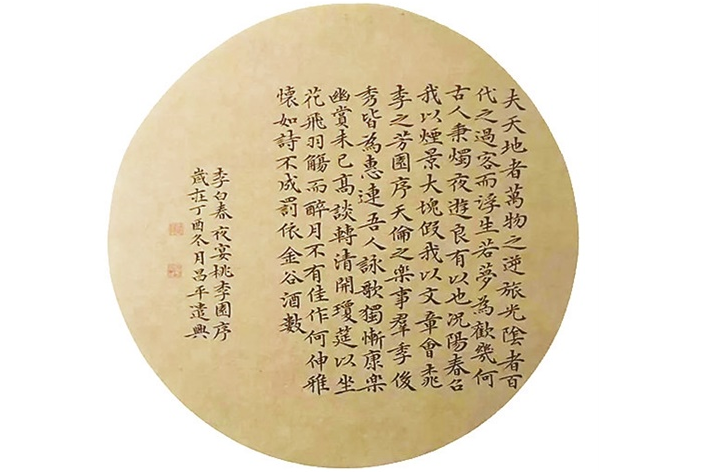 夫天地者萬物之逆旅光陰者百
代之過客而浮生若夢為歡幾何
古人秉燭夜遊良有以也況陽春召
我以煙景大塊假我以文章會桃
李之芳園序天倫之樂事羣季俊
秀皆為惠連吾人詠歌獨慚康樂
幽賞未已高談轉清開瓊筵以坐
花飛羽觴而醉月不有佳作何伸雅
懷如詩不成罰依金谷酒數
李白春夜宴桃李園序
歲在丁酉冬月昌平興